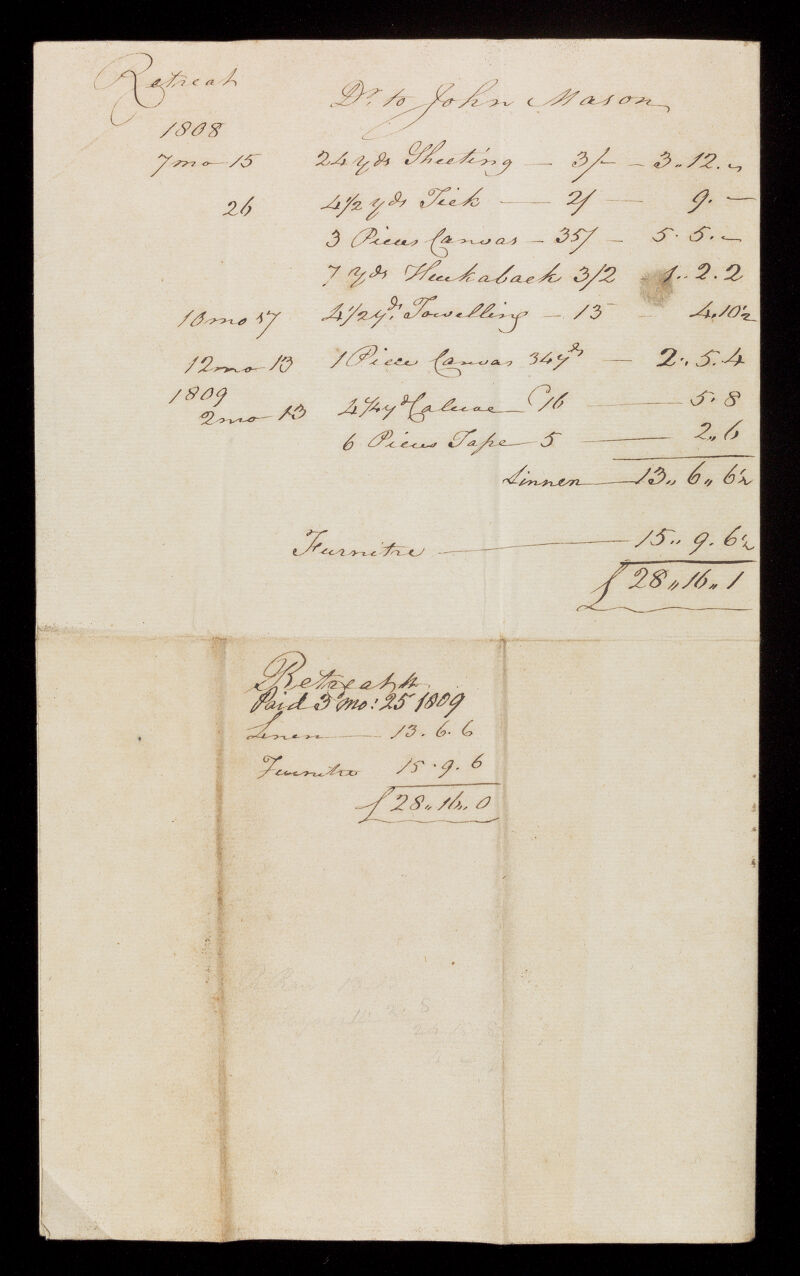 Retreat
Dr. to John Mason
1808
7 mo 15 24 yds Sheeting — 3/- — 3„ 12. „
26 4½ yds Tick — 2/ — 9. —
3 Pieces Canvas — 35/ — 5. 5. —
7 yds Huckaback 3/2 1. 2. 2
10 mo 17 4½ yds. Towelling — 13 — 4. 10½
12 mo 13 1 Piece Canvas 34 yds — 2„ 5. 4
1809
2 mo 13 4¼ yd 16 — 5. 8
6 Pieces Tape — 5 — 2„ 6
Linnen — 13„ 6„ 6½
Furnitre — 15„ 9. 6½
£ 28„ 16„ 1
Retreat
Paid 3d mo: 25 1809
Linen — 13. 6. 6
Furnitre 15. 9. 6
£ 28„ 16„ 0
13
11. 3. 8